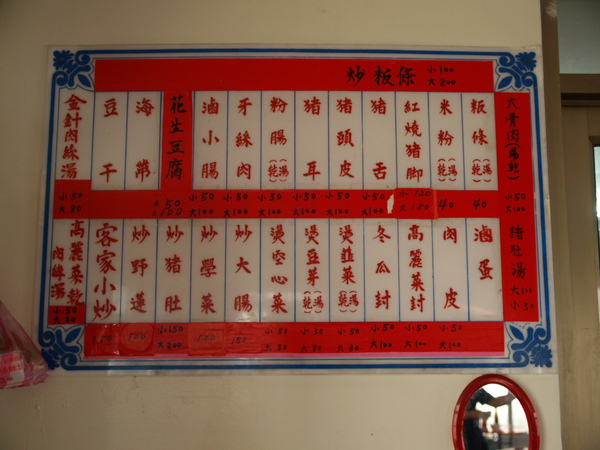 炒粄條 小100 大200
大骨肉(湯乾)
小50
大100
粄條(湯乾)
40
米粉(湯乾)
40
紅燒豬腳
小120
大180
豬舌
小50
大100
豬頭皮
小50
大100
豬耳
小50
大100
粉腸(湯乾)
小50
大100
牙絲肉
小50
大100
滷小腸
小50
大100
花生豆腐
50
海帶
豆干
金針肉絲湯
小50
大80
豬肚湯
滷蛋
肉皮
小50
大100
高麗菜封
小50
大100
冬瓜封
小50
大100
燙韮菜(湯乾)
小50
大80
燙豆芽(湯乾)
小50
大80
燙空心菜
小50
大80
炒大腸
150
炒學菜
炒豬肚
小150
大200
炒野蓮
客家小炒
高麗菜乾
肉絲湯
小50
大80